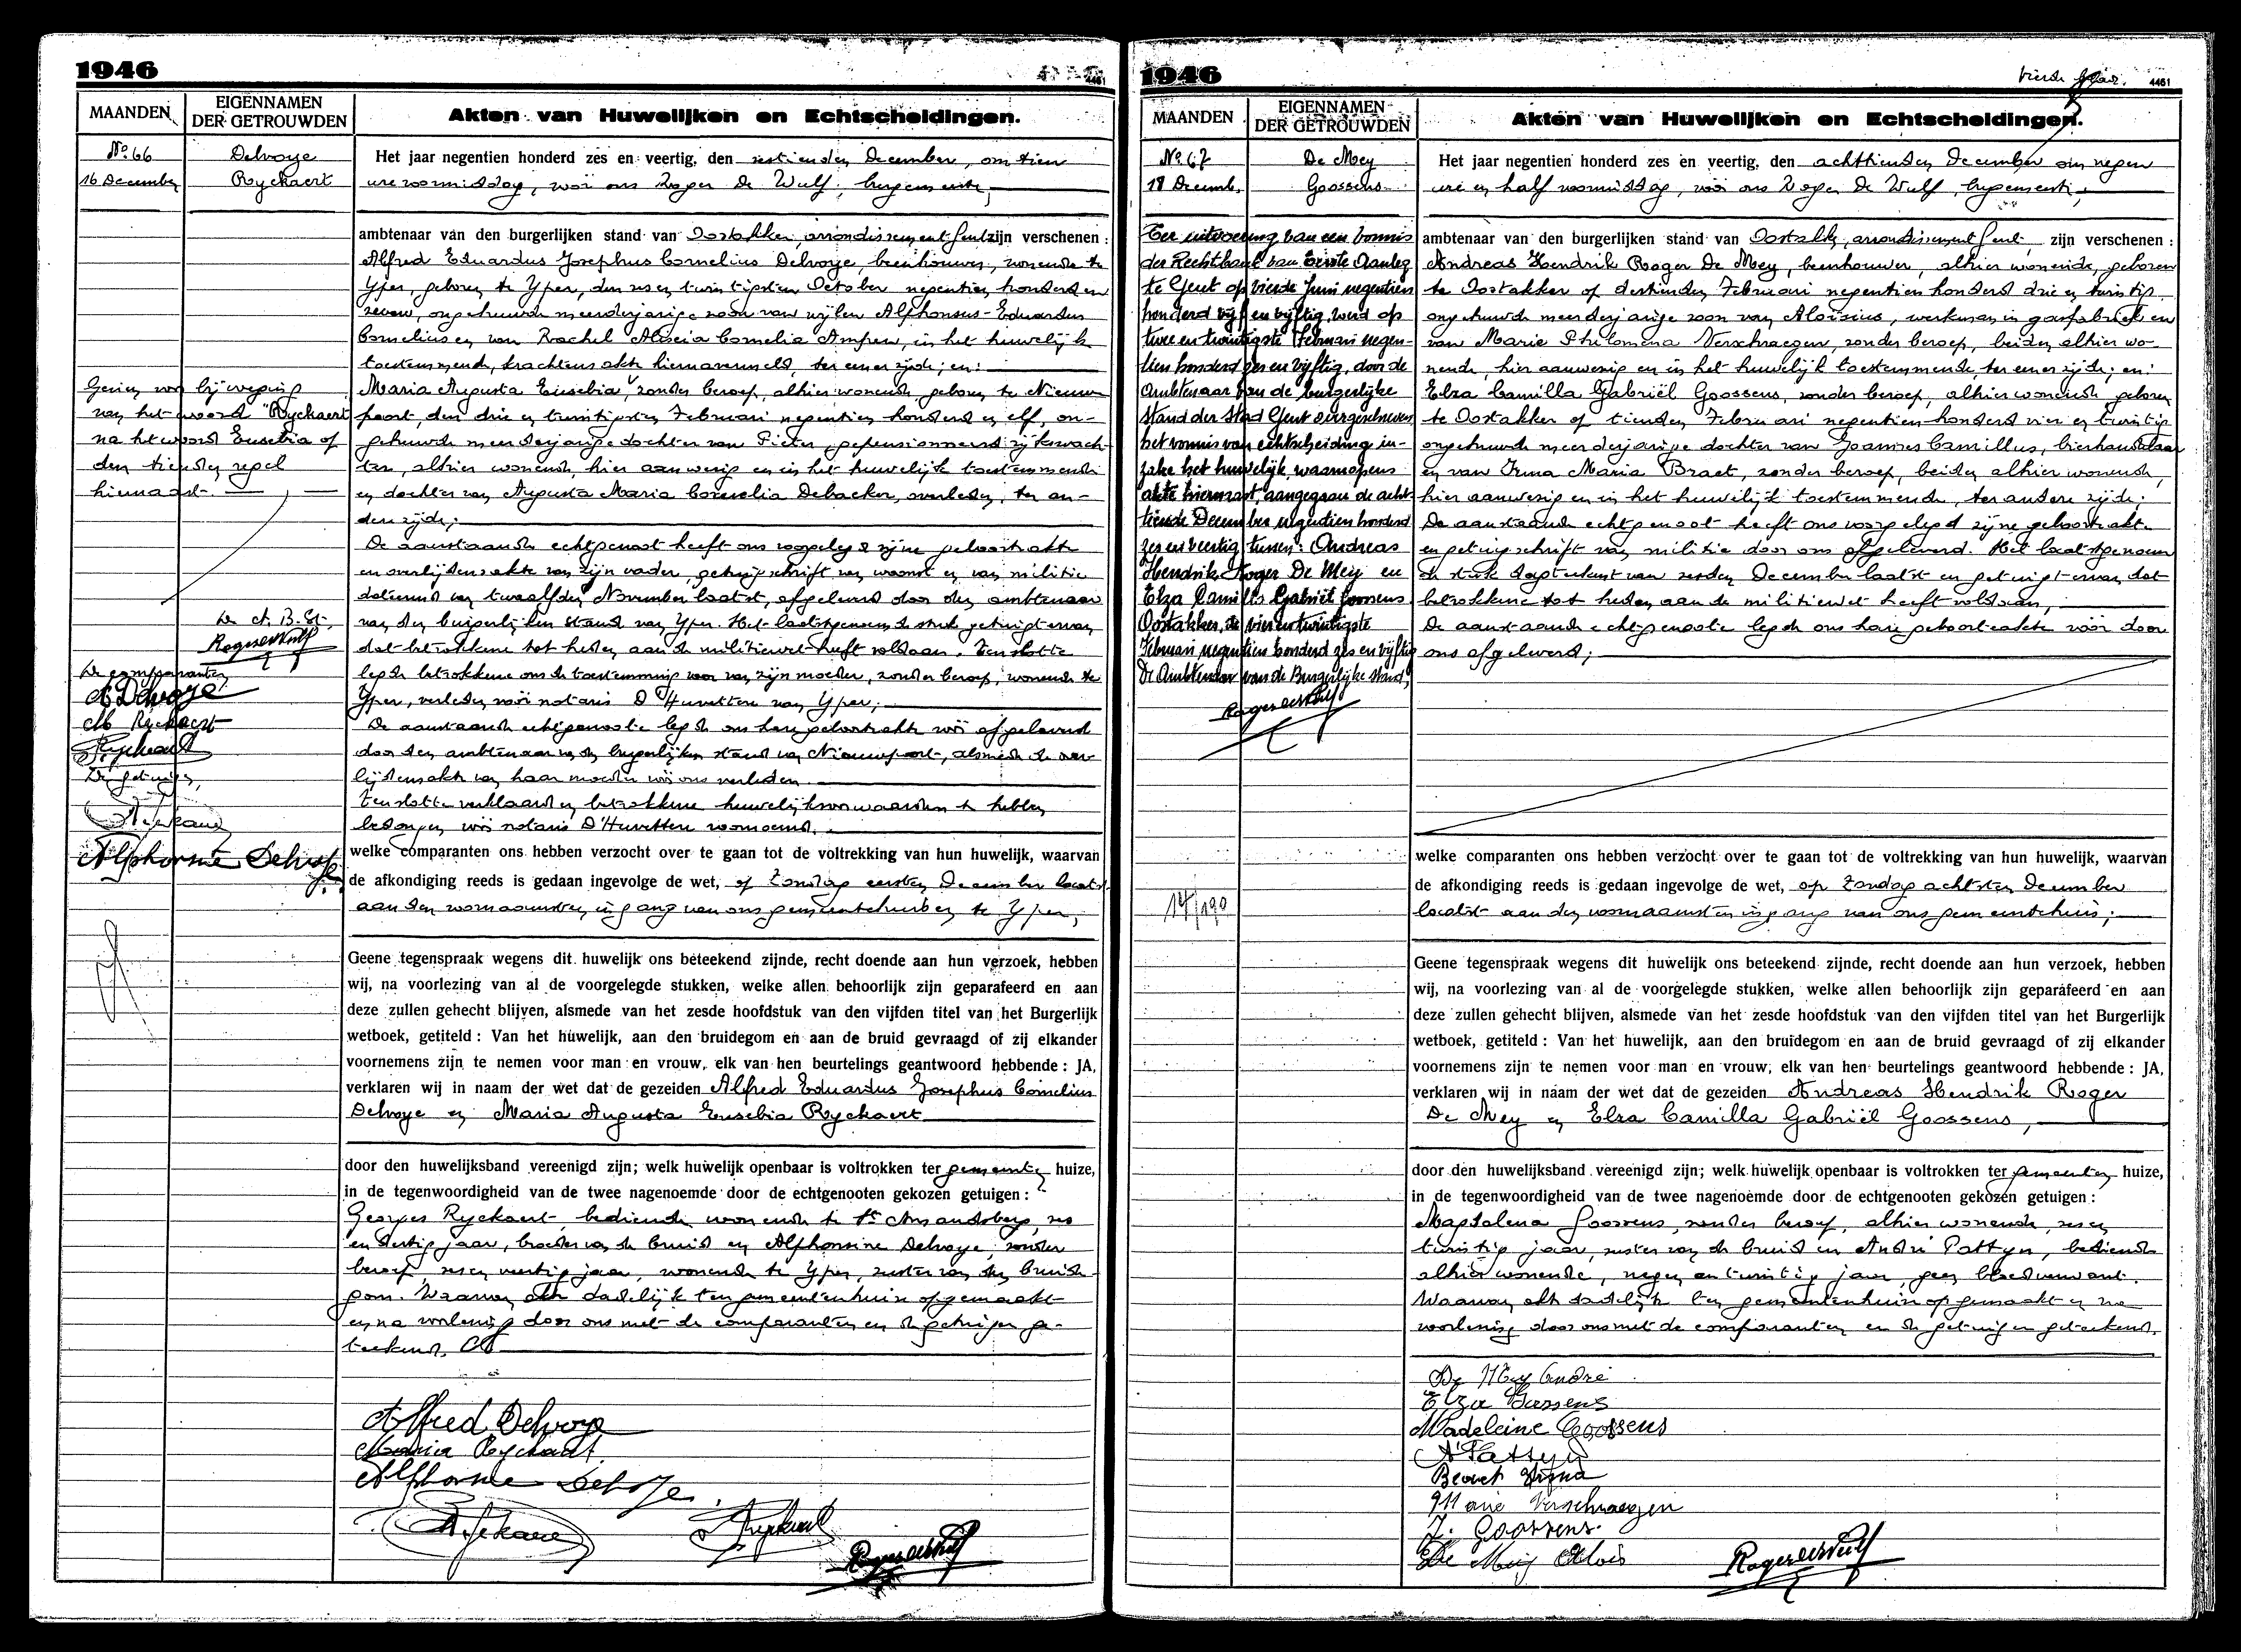 1946
4461
MAANDEN
EIGENNAMEN
DER GETROUWDEN
Akten van Huwelijken en Echtscheidingen.
No 66
Delvoye
16 December
Ryckaert
Het jaar negentien honderd zes en veertig, den zestienden December, om tien
ure voormiddag, voor ons Roger De Wulf, burgemeester,
ambtenaar van den burgerlijken stand van Oostakker, arrondissement Gent zijn verschenen :
Alfred Eduardus Josephus Cornelius Delvoye, beenhouwer, wonende te
Yper, geboren te Yper, den zes en twintigsten October negentien honderd en
zeven, ongehuwde meerderjarige zoon van wijlen Alphonsus-Eduardus
Cornelius en van Rachel Cornelia Ampen, in het huwelijk
toestemmende, krachtens akte hiernavermeld, ter eener zijde; en:
Maria Augusta Eusebia, zonder beroep, alhier wonende, geboren te Nieuw-
poort, den drie en twintigsten Februari negentien honderd en elf, on-
gehuwde meerderjarige dochter van Pieter, gepensionneerd rijkswach-
ter, alhier wonende, hier aanwezig en in het huwelijk toestemmende
en dochter van Augusta Maria Cornelia Debacker, overleden, ter an-
dere zijde;
De aanstaande echtgenoot heeft ons voorgelegd zijne geboorteakte
en overlijdensakte van zijn vader, getuigschrift van woonst en van militie
dateerend van twaalfden November laatst, afgeleverd door den ambtenaar
van den burgerlijken stand van Yper. Het laatstgenoemde stuk getuigt ervan
dat betrokkene tot heden aan de militiewet heeft voldaan. Tenslotte
legde betrokkene ons de toestemming voor van zijn moeder, zonder beroep, wonende te
Yper, verleden voor notaris D'Huvettere van Yper;
De aanstaande echtgenoote legde ons hare geboorteakte voor afgeleverd
door den ambtenaar van den burgerlijken stand van Nieuwpoort, alsmede de over-
lijdensakte van haar moeder voor ons verleden.
Tenslotte verklaarden betrokkene huwelijksvoorwaarden te hebben
bedongen voor notaris D'Huvettere voornoemd.
Gezien voor bijvoeging
van het woord "Ryckaert"
na het woord Eusebia op
den tienden regel
hiernaast.
De A. B. St.
Roger De Wulf
De comparanten
A Delvoye
M Ryckaert
Ryckaert
De getuigen,
Alphonsine Delvoye
welke comparanten ons hebben verzocht over te gaan tot de voltrekking van hun huwelijk, waarvan
de afkondiging reeds is gedaan ingevolge de wet, op Zondag eersten December laatst
aan den voornaamsten ingang van ons gemeentehuis en te Yper;
Geene tegenspraak wegens dit huwelijk ons beteekend zijnde, recht doende aan hun verzoek, hebben
wij, na voorlezing van al de voorgelegde stukken, welke allen behoorlijk zijn geparafeerd en aan
deze zullen gehecht blijven, alsmede van het zesde hoofdstuk van den vijfden titel van het Burgerlijk
wetboek, getiteld : Van het huwelijk, aan den bruidegom en aan de bruid gevraagd of zij elkander
voornemens zijn te nemen voor man en vrouw, elk van hen beurtelings geantwoord hebbende : JA,
verklaren wij in naam der wet dat de gezeiden Alfred Eduardus Josephus Cornelius
Delvoye en Maria Augusta Eusebia Ryckaert
door den huwelijksband vereenigd zijn; welk huwelijk openbaar is voltrokken ter gemeenten huize,
in de tegenwoordigheid van de twee nagenoemde door de echtgenooten gekozen getuigen :
Georges Ryckaert, bediende wonende te St Amandsberg, zes
en dertig jaar, broeder van de bruid en Alphonsine Delvoye, zonder
beroep, zes en veertig jaar, wonende te Yper, zuster van den bruide-
gom. Waarvan akte dadelijk ten gemeentenhuize opgemaakt
en na voorlezing door ons met de comparanten en de getuigen ge-
teekend.
Alfred Delvoye
Maria Ryckaert.
Alphonsine Delvoye.
Ryckaert
Roger De Wulf
1946
vierde blad.
4461
MAANDEN
EIGENNAMEN
DER GETROUWDEN
Akten van Huwelijken en Echtscheidingen.
No 67
De Mey
18 Decemb.
Goossens
Het jaar negentien honderd zes en veertig, den achttienden December om negen
ure en half voormiddag, voor ons Roger De Wulf, burgemeester,
ambtenaar van den burgerlijken stand van Oostakker, arrondissement Gent zijn verschenen :
Andreas Hendrik Roger De Mey, beenhouwer, alhier wonende, geboren
te Oostakker op dertienden Februari negentien honderd drie en twintig
ongehuwde meerderjarige zoon van Aloïsius, werkman in gasfabriek en
van Marie Philomena Verschraegen, zonder beroep, beiden alhier wo-
nende hier aanwezig en in het huwelijk toestemmende, ter eener zijde; en:
Elza Camilla Gabriël Goossens, zonder beroep, alhier wonende, geboren
te Oostakker op tienden Februari negentien honderd vier en twintig
ongehuwde meerderjarige dochter van Joannes Camillus, bierhandelaar
en van Irma Maria Braet, zonder beroep, beiden alhier wonende,
hier aanwezig en in het huwelijk toestemmende, ter andere zijde;
De aanstaande echtgenoot heeft ons voorgelegd zijne geboorteakte
en getuigschrift van militie door ons afgeleverd. Het laatstgenoem
de stuk dagteekent van zesden December laatst en getuigt ervan dat
betrokkene tot heden aan de militiewet heeft voldaan;
De aanstaande echtgenoote legde ons hare geboorteakte voor door
ons afgeleverd;
Ter uitvoering van een vonnis
der Rechtbank van Eerste Aanleg
te Gent op vierde Juni negentien
honderd vijf en vijftig, werd op
twee en twintigste Februari negen-
tien honderd zes en vijftig, door de
Ambtenaar van de burgerlijke
stand der Stad Gent overgeschreven
het vonnis van echtscheiding in-
zake het huwelijk, waarnopens
akte hiernaast, aangegaan de acht-
tiende December negentien honderd
zes en veertig tussen: Andreas
Hendrik Roger De Mey en
Elza Camilla Gabriël Goossens.
Oostakker, de vier en twintigste
Februari negentien honderd zes en vijftig
De Ambtenaar van de Burgerlijke stand,
Roger De Wulf
welke comparanten ons hebben verzocht over te gaan tot de voltrekking van hun huwelijk, waarvan
de afkondiging reeds is gedaan ingevolge de wet, op Zondag achtsten December
laatst aan den voornaamsten ingang van ons gemeentehuis;
Geene tegenspraak wegens dit huwelijk ons beteekend zijnde, recht doende aan hun verzoek, hebben
wij, na voorlezing van al de voorgelegde stukken, welke allen behoorlijk zijn geparafeerd en aan
deze zullen gehecht blijven, alsmede van het zesde hoofdstuk van den vijfden titel van het Burgerlijk
wetboek, getiteld : Van het huwelijk, aan den bruidegom en aan de bruid gevraagd of zij elkander
voornemens zijn te nemen voor man en vrouw, elk van hen beurtelings geantwoord hebbende : JA,
verklaren wij in naam der wet dat de gezeiden Andreas Hendrik Roger
De Mey en Elza Camilla Gabriël Goossens,
door den huwelijksband vereenigd zijn; welk huwelijk openbaar is voltrokken ter gemeenten huize,
in de tegenwoordigheid van de twee nagenoemde door de echtgenooten gekozen getuigen :
Magdalena Goossens, zonder beroep, alhier wonende, zes en
twintig jaar, zuster van de bruid en André Pattyn, bediende
alhier wonende, negen en twintig jaar, geen bloedverwant.
Waarvan akte dadelijk ten gemeentenhuize opgemaakt en na
voorlezing door ons met de comparanten en de getuigen geteekend.
De Mey André
Elza Goossens
Madeleine Goossens
A Pattyn
Braet Irma
Marie Verschraegen
J. Goossens.
De Mey Alois
Roger De Wulf